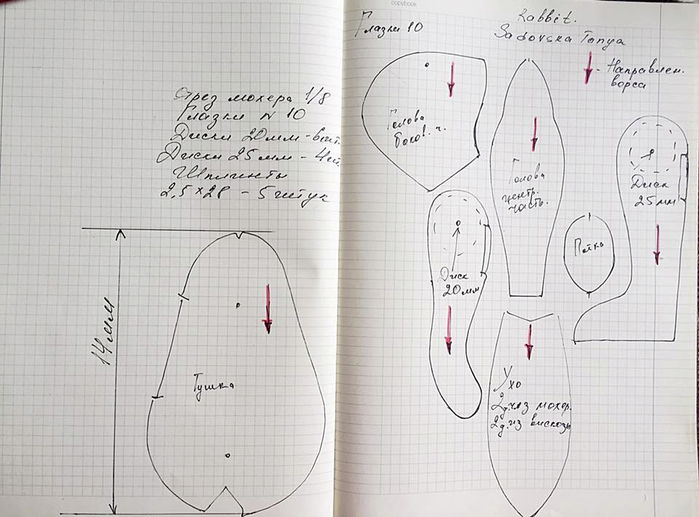 Отрез мохера 1/8
Глазки № 10
Диски 20мм - 6шт.
Диски 25мм - 4шт.
Шплинты
2,5×28 - 5 штук
14мм
Тушка
copybook
Глазки 10
Rabbit.
Sadovska Tanya
- Направлен.
ворса
Голова
боков. ч.
Голова
центр.
часть.
Диск
25мм
Диск
20мм
Ухо
2д. из мохер.
2д. из вискозы